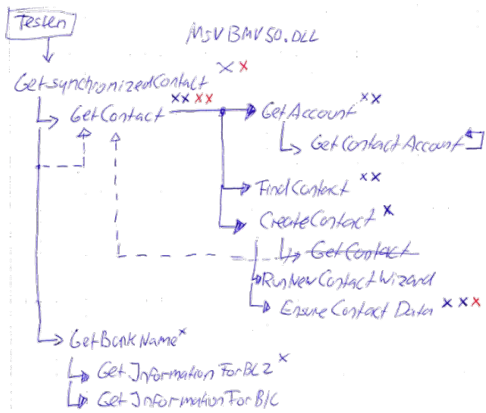 Testen
MSVBMV50.DLL
GetSynchronizedContact xx
GetContact xxxx
GetAccount xx
GetContactAccount
FindContact xx
CreateContact x
GetContact
RunNewContactWizard
EnsureContactData xxx
GetBankName x
GetInformationForBLZ x
GetInformationForBIC